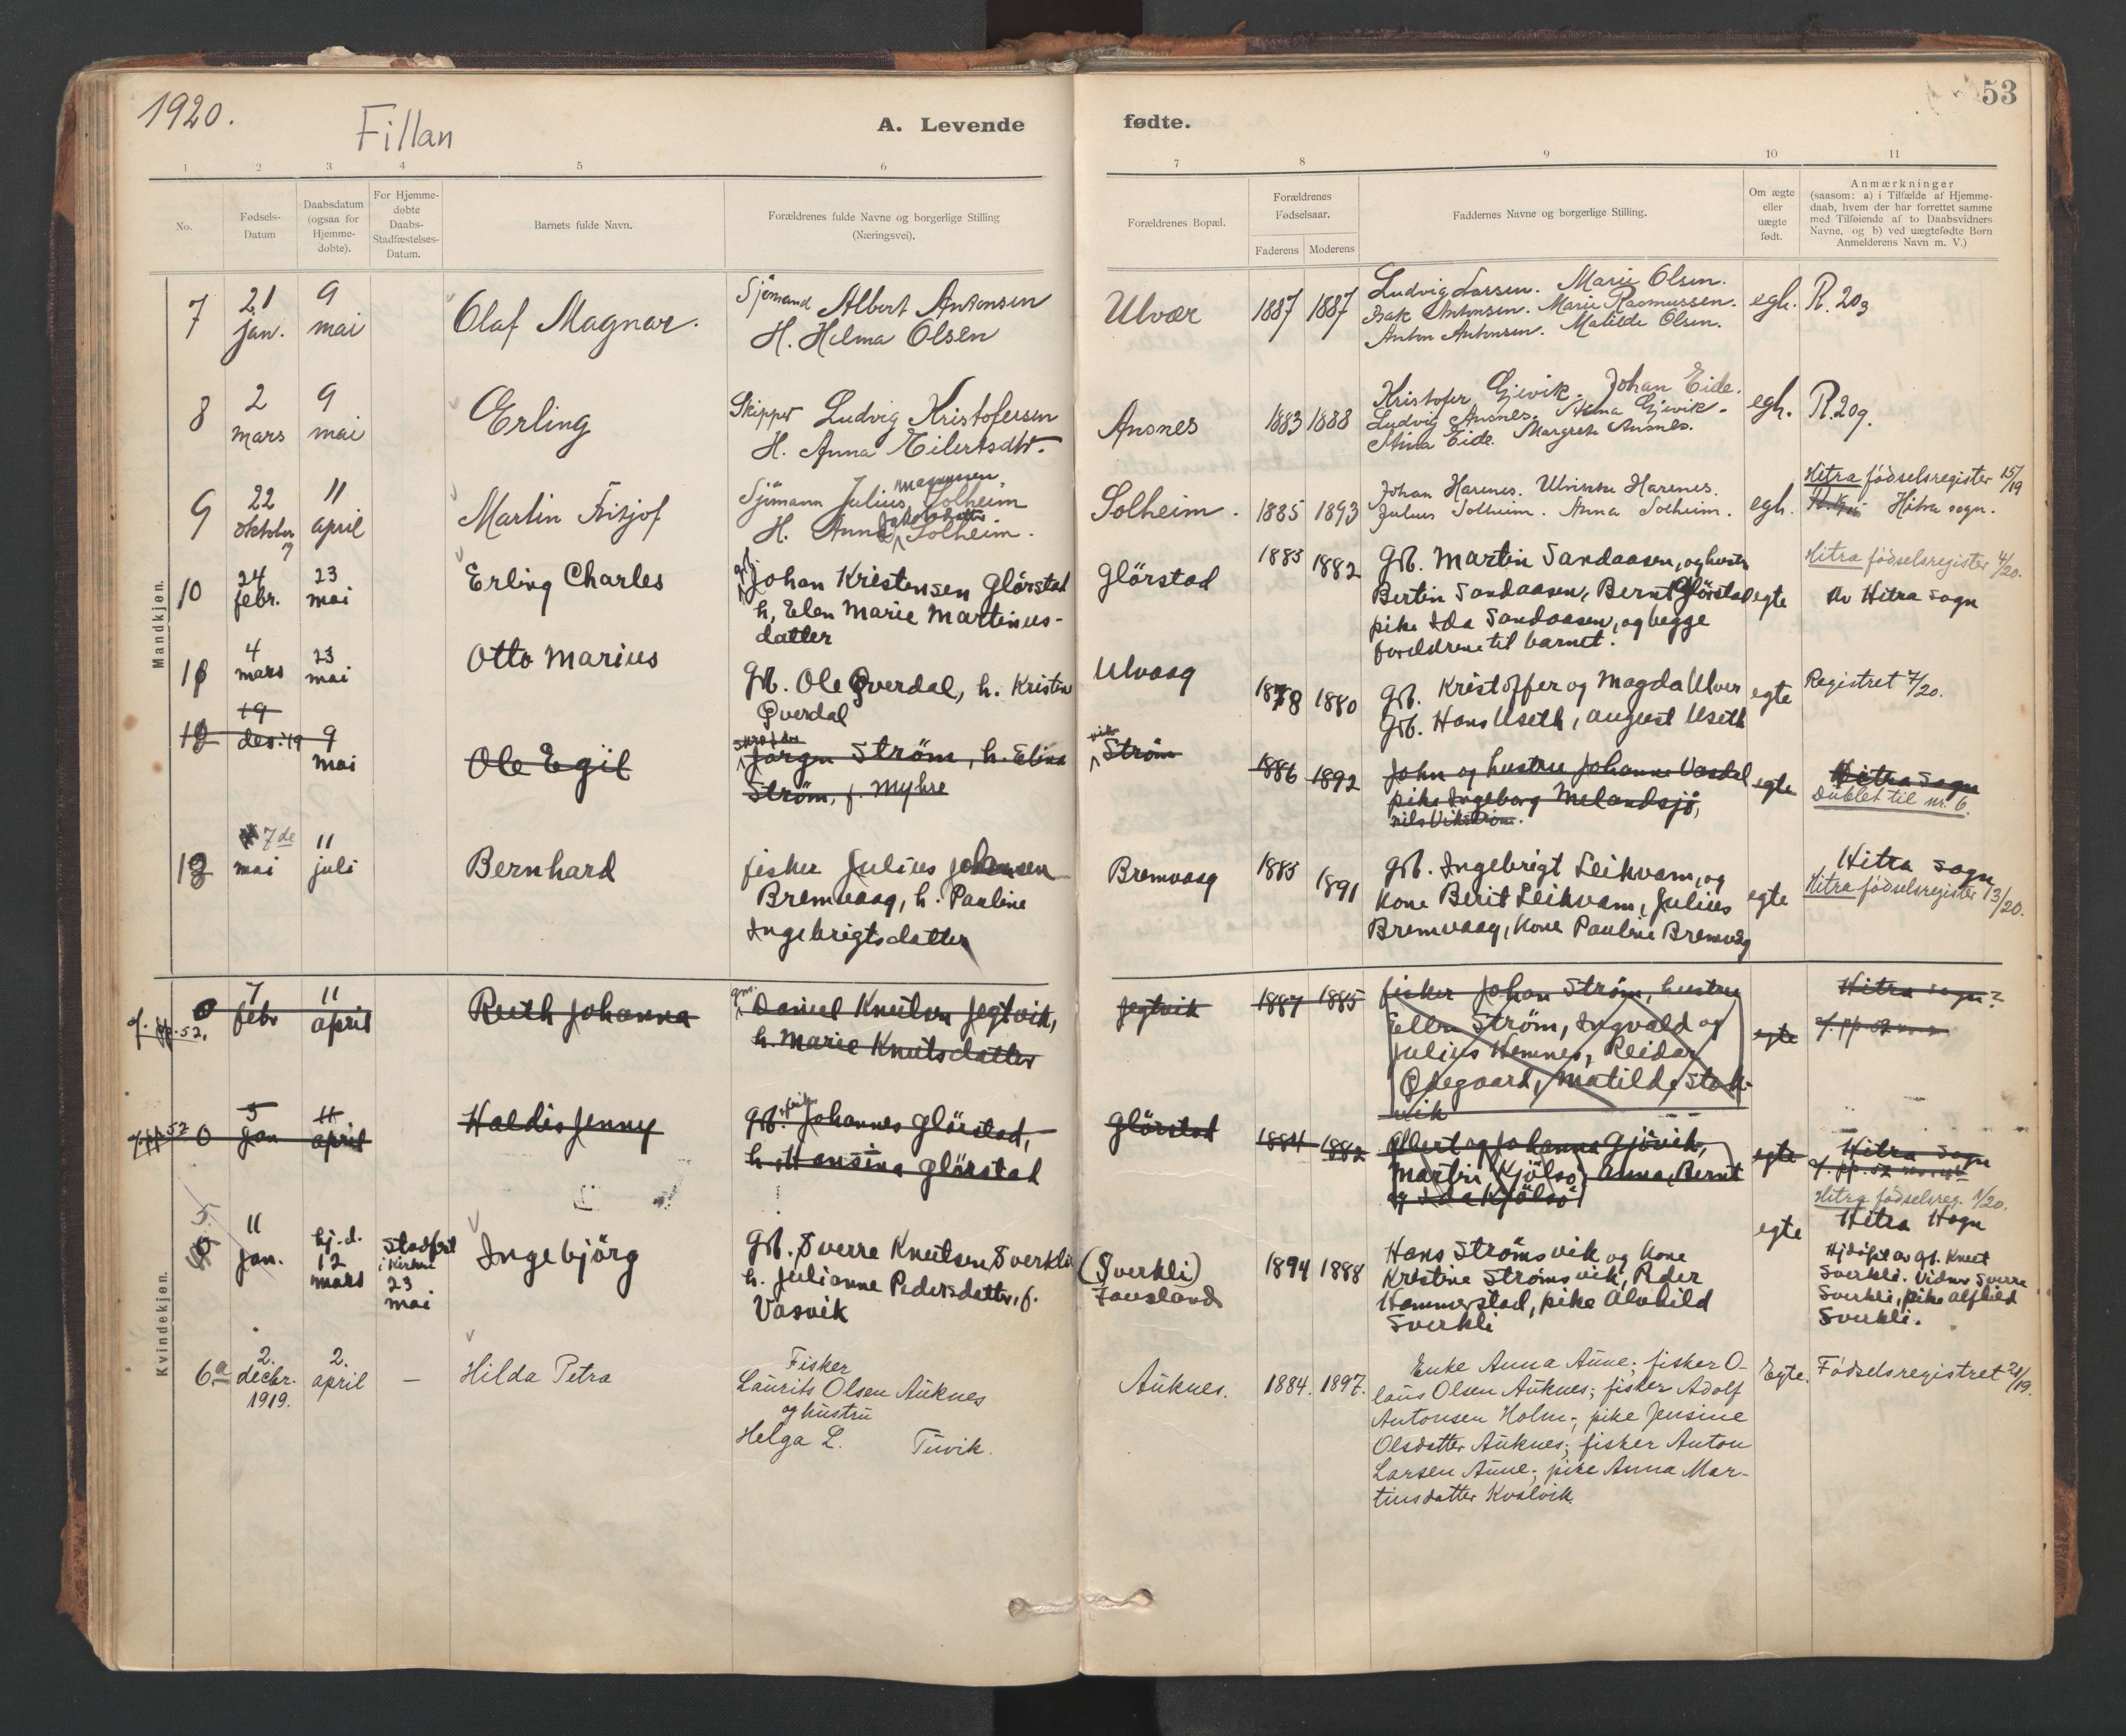 1920.
Fillan
A. Levende fødte.
53
1 2 3 4 5 6 7 8 9 10 11
No.
Fødsels-
Datum
Daabsdatum
(ogsaa for
Hjemme-
døbte).
For Hjemme-
døbte
Daabs-
Stadfæstelses-
Datum.
Barnets fulde Navn.
Forældrenes fulde Navne og borgerlige Stilling
(Næringsvei).
Forældrenes Bopæl.
Forældrenes
Fødselsaar.
Faderens Moderens
Faddernes Navne og borgerlige Stilling.
Om ægte
eller
uægte
født.
Anmærkninger
(saasom: a) i Tilfælde af Hjemme-
daab, hvem der har forrettet samme
med Tilføiende af to Daabsvidners
Navne, og b) ved uægtefødte Børn
Anmelderens Navn m. V.)
Mandkjøn.
7
21
jan.
9
mai
Olaf Magnar.
Sjømand Albert Antonsen
H. Helma Olsen
Ulvær
1887 1887
Ludvig Larsen. Marie Olsen.
Isak Antonsen. Marie Rasmussen.
Anton Antonsen. Matilde Olsen.
egt.
R. 20
8
2
mars
9
mai
Erling
Skipper Ludvig Kristofersen
H. Anna Eilertsdtr.
Ansnes
1883 1888
Kristofer Gjevik. Johan Eide.
Ludvig Ansnes. Gjevik.
Stina Eide. Margrete Ansnes.
egt.
R. 20
9
22
oktober
19
11
april
Martin Fritjof
Magnussen
Sjömann Julius Solheim
Jakobsdatter
H. Anna Solheim.
Solheim.
1885 1893
Johan Harenes. Ulrikke Harenes.
Julius Solheim. Anna Solheim.
egt.
Hitra födselsregister 15/19
Hitra sogn.
10
24
febr.
23
mai
Erling Charles
Johan Kristensen Glörstad
h, Elen Marie Martinus-
datter
Glörstad
1883 1882
Gb. Martin Sandaasen, og hustru
Bertin Sandaasen, Bernt Glörstad
pike Ida Sandaasen, og begge
foreldrene til barnet.
egte
Hitra födselsregister 4/20.
Av Hitra sogn
11
4
mars
23
mai
Otto Marius
Gb. Ole Øverdal, h. Kristin
Øverdal
Ulvaag
1878 1880
Gb. Kristoffer og Magda Ulver
Gb. Hans Useth, August Useth
egte
Registret 7/20.
12
19
des. 19
9
mai
Ole Egil
Jörgen Ström, h. Elina
Ström, f. Myhre
vik
Ström
1886 1892
John og hustru Johanna Vasdal
pike Ingeborg Melandsjö,
Nils Vikström.
egte
Hitra sogn
Dublet til nr. 6.
13
7de
mai
11
juli
Bernhard
fisker Julius Johansen
Bremvaag, h. Pauline
Ingebrigtsdatter
Bremvaag
1885 1891
Gb. Ingebrigt Leikvam, og
Kone Berit Leikvam, Julius
Bremvaag, Kone Pauline Bremvåg
egte
Hitra sogn
Hitra födselsregister 13/20.
Kvindekjøn.
cf. pp. 52.
0
7
febr
11
april
Ruth Johanna
Daniel Knutsen Jegtvik,
h. Marie Knutsdatter
Jegtvik
1887 1885
fisker Johan Ström, hustru
Ellen Ström, Ingvald og
Julius Hemnes, Reidar
Ødegaard, Matilde Stok-
vik
egte
Hitra sogn?
cf. pp. 52
0
5
jan
11
april
Haldis Jenny
Gb. Johannes Glörstad,
h. Hansina Glörstad
Glörstad
1884 1882
Albert og Johanna Gjövik,
Martin Kjölsö, Anna, Bernt
og Ida Kjölsö
egte
Hitra sogn
cf. pp. 52
5.
11
jan.
hj. d.
12
mars
Stadfest
i Kirken
23
mai
Ingebjörg
Gb. Sverre Knutsen Sverkli
h. Julianne Pedersdatter, f.
Vasvik
(Sverkli)
1894 1888
Hans Strömsvik og Kone
Kristine Strömsvik, Peder
Hammerstad, pike Alvhild
Sverkli
egte
Hitra födselsreg. 1/20.
Hitra Sogn
Hjdöpt av Gb. Knut
Sverkli. Vidner Sverre
Sverkli, pike Alfhild
Sverkli.
6a
2.
decbr.
1919.
2.
april
—
Hilda Petra
Fisker
Laurits Olsen Auknes
og hustru
Helga L. Tuvik.
Auknes.
1884. 1897.
Enke Anna Aune; fisker O-
laus Olsen Auknes; fisker Adolf
Antonsen Holm; pike Jensine
Olsdatter Auknes; fisker Anton
Larsen Aune; pike Anna Mar-
tinsdatter Kvalvik.
Egte.
Födselsregistret 21/19.